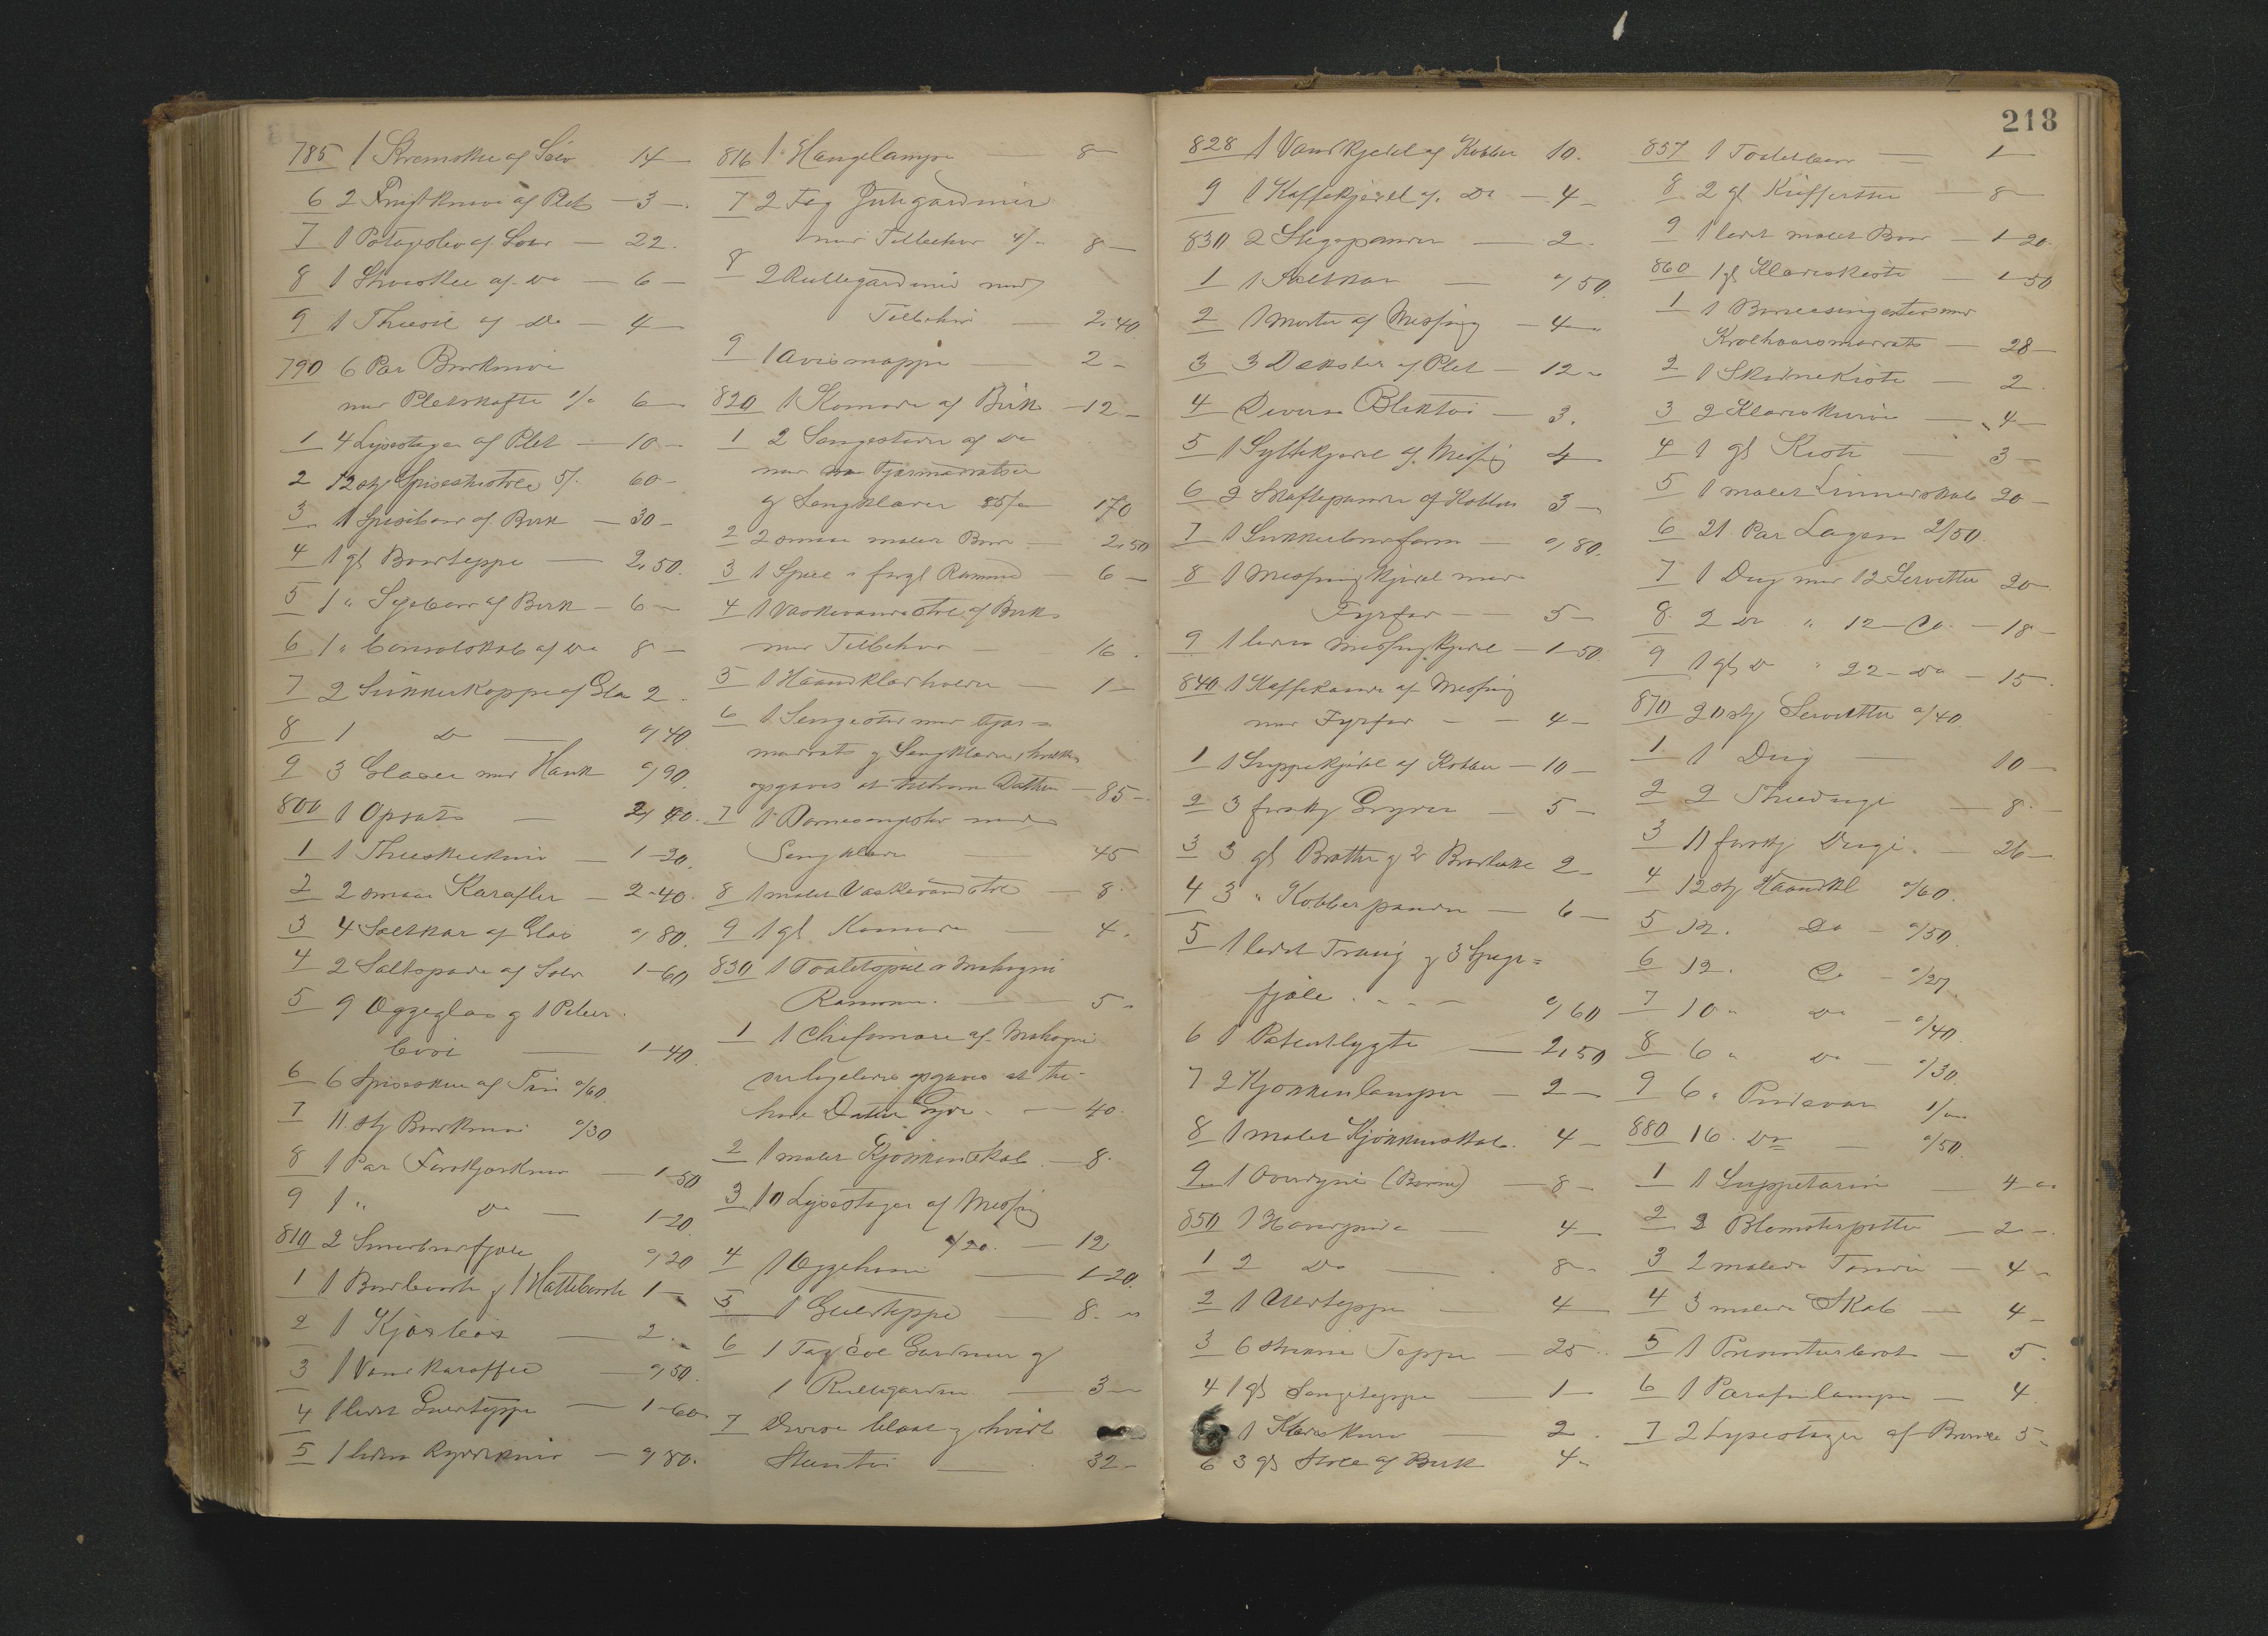 785 1 Stroeskee af Sølv 14 —
6 2 Frugtknive af Plet — 3 —
7 1 Potageslev af Sølv — 22.
8 1 Stroeskee af Do — 6 —
9 1 Theesie af Do — 4 —
790 6 Par Bordknive
med Pletskafte 1/" 6 —
1 4 Lysestager af Plet — 10 —
2 12 stk Spisestuestole 5/. 60 —
3 1 Spisebord af Birk — 30 —
4 1 gl Bordteppe — 2,50.
5 1 " Sybord af Birk — 6 —
6 1 " Consolskab af Do 8 —
7 2 Sukkerkopper af Glas 2.
8 1 Do — "/40
9 3 Glasser med Hank "/90.
800 1 Opsats — 2,40.
1 1 Theeskeekurv — 1-20.
2 2 smaa Karafler — 2-40.
3 4 Saltkar af Glas "/80.
4 2 Saltspader af Sølv 1-60
5 9 Æggeglas og 1 Peber
bøsse — 1-40
6 6 Spiseskeer af Tin "/60.
7 11 stk Bordknive "/30
8 1 Par Forskjærknive — 1-50
9 1 " Do — 1-20.
810 2 Smørbrødfjæle "/20
1 1 Bordbørste og 1 Hattebørste 1 —
2 1 — 2.
3 1 Vandkaraffel — "/50.
4 1 lidet Gulvteppe — 1-60
5 1 liden — "/80.
816 1 Hængelampe — 8 —
7 2 Fag Jutegardiner
med Tilbehør 4/" 8 —
8 2 Rullegardiner med
Tilbehør — 2,40
9 1 Avismappe — 2 —
820 1 Komode af Birk — 12 —
1 2 Sengesteder af Do
med Fjærmadratser
og Sengklæder 85/" 170
2 2 smaa malede Bord — 2,50
3 1 Speil i forgl Ramme — 6 —
4 1 Vaskevandsstol af Birk
med Tilbehør — 16.
5 1 Haandklædholder — 1 —
6 1 Sengested med Fjær=
madrats og Sengklæder, hvilket
opgaves at tilhøre Datter — 85 —
7 1 Barnesengested med
Sengklæder — 45
8 1 malet Vaskevandsstol — 8.
9 1 gl Komode — 4.
830 1 Toiletspeil i Mahogni
Ramme. — 5 —
1 1 Chifoniere af Mahogni
opgaves at til-
høre Datter — 40.
2 1 malet Kjøkkenskab — 8.
3 10 Lysestager af Messing
1/20. — 12
4 1 — 1-20.
5 1 Gulvteppe — 8. "
6 1 Fag Gardiner og
1 Rullegardin — 3 —
7 Diverse blaat og hvidt
Stentøi — 32 —
218
828 1 Vandkjedel af Kobber 10.
9 1 Kaffekjedel af Do — 4 —
830 2 Stegepander — 2.
1 1 Saltkar — "/50.
2 1 Morter af Messing — 4 —
3 3 Dæksler af Plet — 12 "
4 Diverse Bliktøi — 3.
5 1 Syltekjedel af Messing 4
6 2 Skaftepander af Kobber 3 —
7 1 Sukkerbrødform — "/80.
8 1 Messingkjedel med
Fyrfad — 5 —
9 1 liden Messingkjedel — 1-50
840 1 Kaffekande af Messing
med Fyrfad — 4 —
1 1 Suppekjedel af Kobber — 10 —
2 3 forskj Gryder — 5 —
3 3 gl Bretter og 2 2 —
4 3 " Kobberpander — 6 —
5 1 lidet Traug og 3
fjæle — "/60
6 1 Patentlygte — 2,50
7 2 Kjøkkenlamper — 2 —
8 1 malet Kjøkkenskab. 4 —
9 1 Overdyne (Barne) — 8 —
850 1 — 4 —
1 2 Do — 8 "
2 1 Uldteppe — 4 —
3 6 Tepper — 25.
4 1 gl Sengeteppe — 1 —
1 Klædeskurv — 2.
6 3 gl Stole af Birk 4 "
857 1 Toiletbord — 1 —
8 2 gl Kufferter — 8 —
9 1 lidet malet Bord — 1-20.
860 1 gl Klædeskiste — 1-50
1 1 Barnesengested med
Krølhaarsmadrats — 28 —
2 1 — 2.
3 2 Klædeskurve — 4 —
4 1 gl Kiste — 3 —
5 1 malet Linnedskab 20 —
6 21 Par Lagen 2/50.
7 1 Dug med 12 Servietter 20 —
8. 2 Do " 12 — Do. — 18 —
9 1 gl Do " 22 — Do — 15.
870 20 stk Servietter "/40
1 1 Dug — 10 —
2 2 Theeduge — 8.
3 11 forskj Duge. — 26 —
4 12 stk Haandkl "/60.
5 12. Do — "/50.
6 12. Do — "/27.
7 10 " Do — "/40.
8 6 " Do — "/30.
9 6 " Pudevar 1/"
880 16. Do — "/50.
1 1 Suppeterrin — 4 —
2 2 Blomsterpotter — 2 —
3 2 malede — 4 "
4 3 malede Skab — 4 —
5 1 — 5.
6 1 Parafinlampe — 4.
7 2 Lysestager af Bronce 5 —